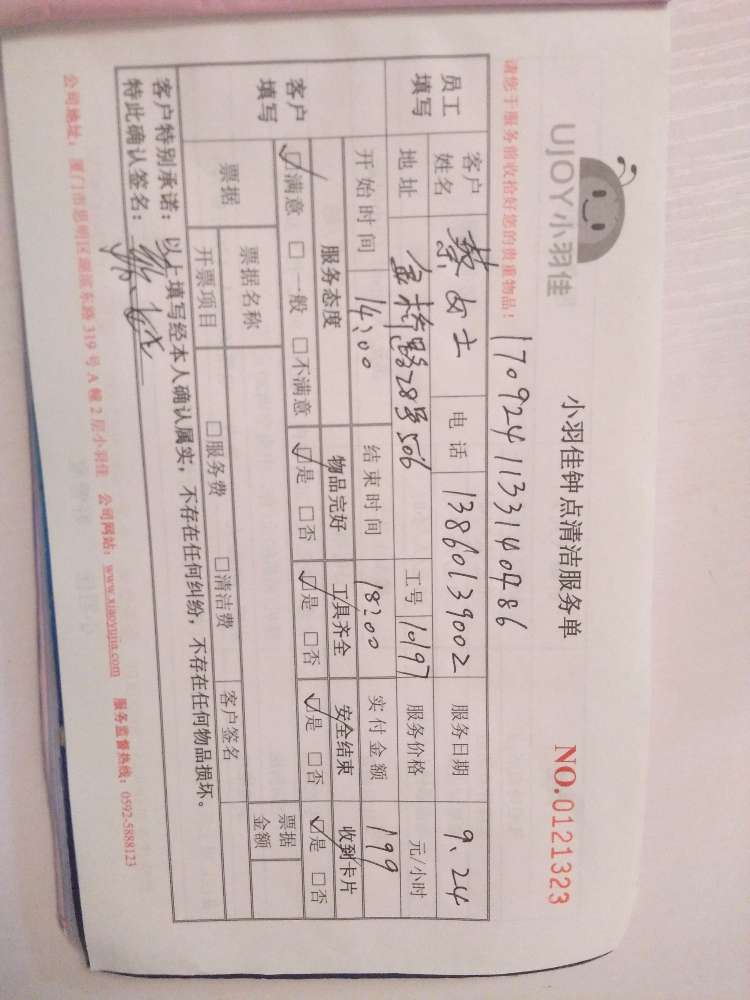 UJOY小羽佳
小羽佳钟点清洁服务单
NO.0121323
请您于服务前收拾好您的贵重物品！
1709241133140486
员工填写
客户姓名 蔡女士 电话 13860139002 服务日期 9.24
地址 金桥路28号506 工号 10197 服务价格 元/小时
开始时间 14:00 结束时间 18:00 实付金额 199
客户填写
服务态度 物品完好 工具齐全 安全结束 收到卡片
☑满意 □一般 □不满意 ☑是 □否 ☑是 □否 ☑是 □否 ☑是 □否
票据 票据名称 票据金额
开票项目 □服务费 □清洁费 客户签名
客户特别承诺：以上填写经本人确认属实，不存在任何纠纷，不存在任何物品损坏。
特此确认签名：
公司地址：厦门市思明区湖滨东路319号A幢2层小羽佳 公司网站：www.xiaoyujia.com 服务监督热线：0592-5888123